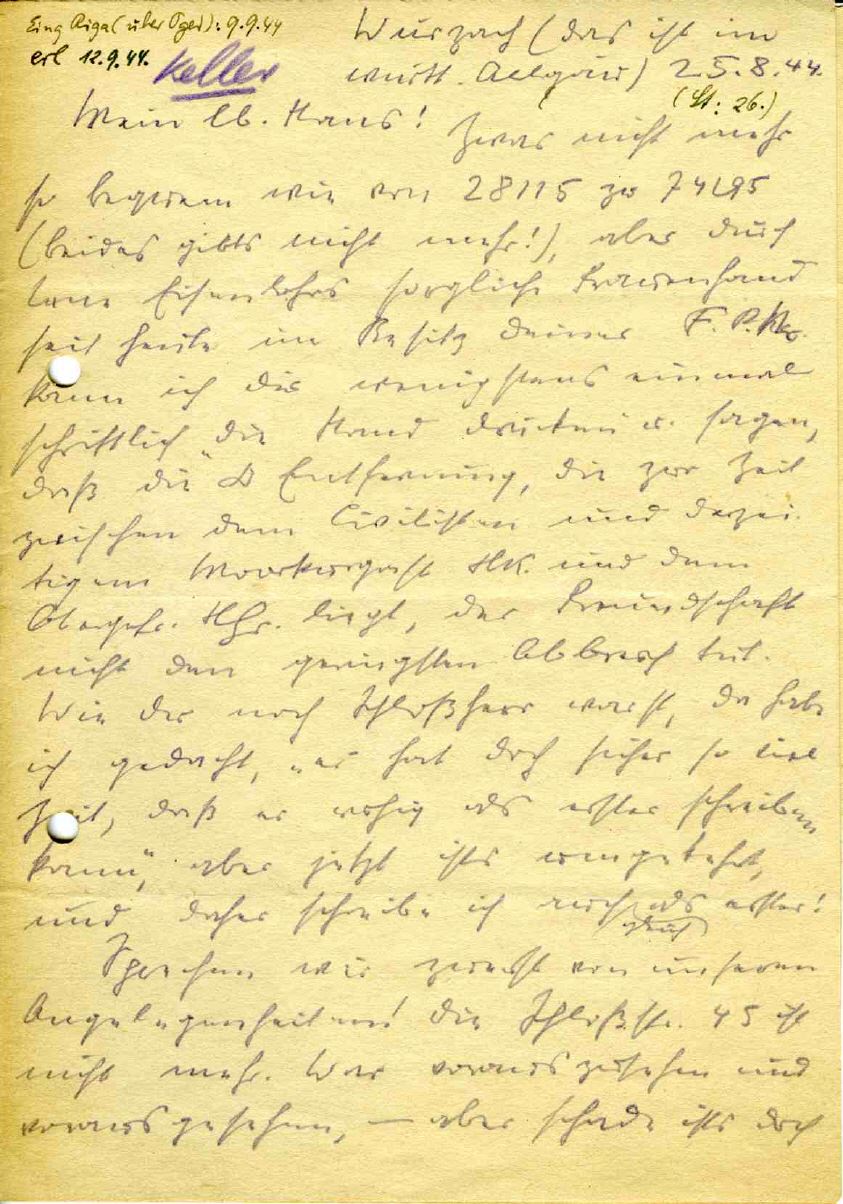 Eing Riga (über Pgei): 9.9.44
erl 12.9.44.
Keller
Wurzach (das ist im
württ. Allgäu) 25.8.44.
(St: 26.)
Mein lb. Hans!
Zwar nicht mehr
so bequem wie von 28115 zu 74295
(beides gibts nicht mehr!), aber durch
Eisenlohrs sorgliche Frauenhand
seit heute im Besitz deiner F.P.Nr.
kann ich dir wenigstens einmal
schriftlich die Hand drücken u. sagen,
daß die Entfernung, die zur Zeit
zwischen dem Civilisten und derzei-
tigem Moorkurgast HK. und dem
Obergefr. HHr. liegt, der Freundschaft
nicht den geringsten Abbruch tut.
Wie du noch Schloßherr warst, da habe
ich gedacht, „er hat doch sicher so viel
Zeit, daß er ruhig als erster schreiben
kann“, aber jetzt ists umgekehrt,
und daher schreibe ich auch als erster!
Sprechen wir zuerst von unseren
Angelegenheiten! Die Schloßstr. 45 ist
nicht mehr. War vorauszusehen und
vorausgesehen, – aber schade ists doch